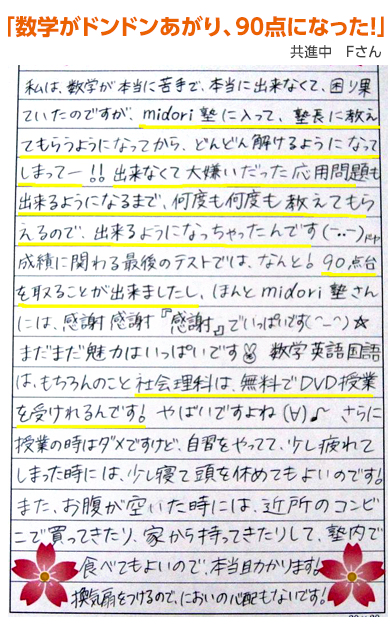 「数学がドンドンあがり、90点になった!」
共進中　Fさん
私は、数学が本当に苦手で、本当に出来なくて、困り果
ていたのですが、midori塾に入って、塾長に教え
てもらうようになってから、どんどん解けるようになって
しまってー!! 出来なくて大嫌いだった応用問題も
出来るようになるまで、何度も何度も教えてもら
えるので、出来るようになっちゃったんです(ー..ー)ドヤ
成績に関わる最後のテストでは、なんと! 90点台
を取ることが出来ましたし、ほんとmidori塾さん
には、感謝感謝『感謝』でいっぱいです(^-^)☆
まだまだ魅力はいっぱいです 数学英語国語
は、もちろんのこと社会理科は、無料でDVD授業
を受けれるんです! やばいですよね(∀)♪ さらに
授業の時はダメですけど、自習をやってて、少し疲れて
しまった時には、少し寝て頭を休めてもよいのです!
また、お腹が空いた時には、近所のコンビ
ニで買ってきたり、家から持ってきたりして、塾内で
食べてもよいので、本当助かります!
換気扇をつけるので、においの心配もないです!